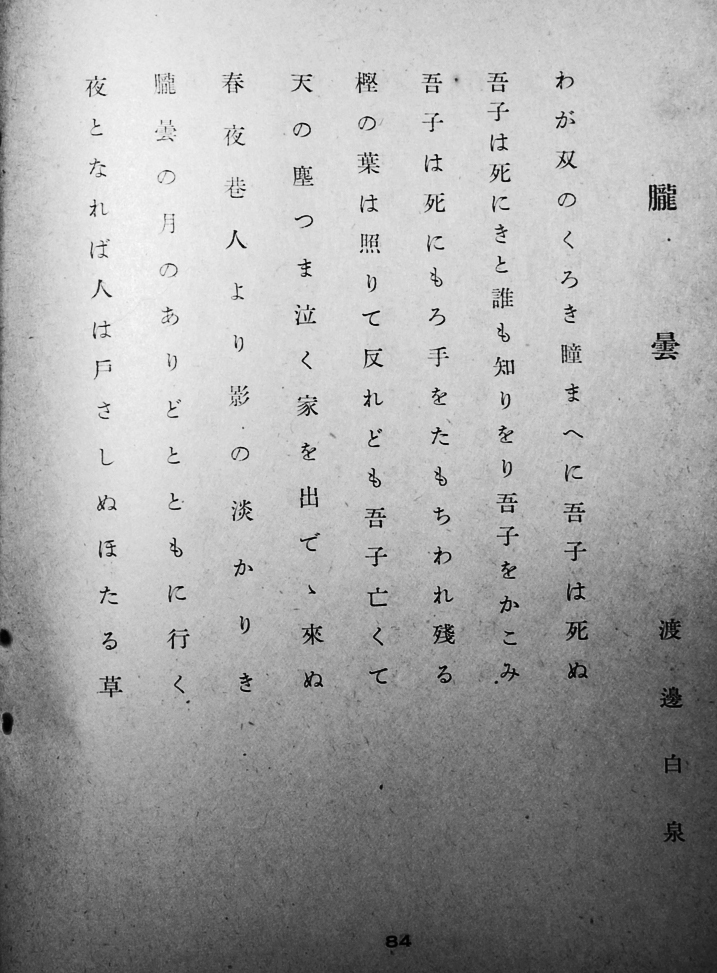 朧曇
渡邊白泉
わが双のくろき瞳まへに吾子は死ぬ
吾子は死にきと誰も知りをり吾子をかこみ
吾子は死にもろ手をたもちわれ残る
樫の葉は照りて反れども吾子亡くて
天の塵つま泣く家を出でゝ來ぬ
春夜巷人より影の淡かりき
朧曇の月のありどとともに行く
夜となれば人は戸さしぬほたる草
84